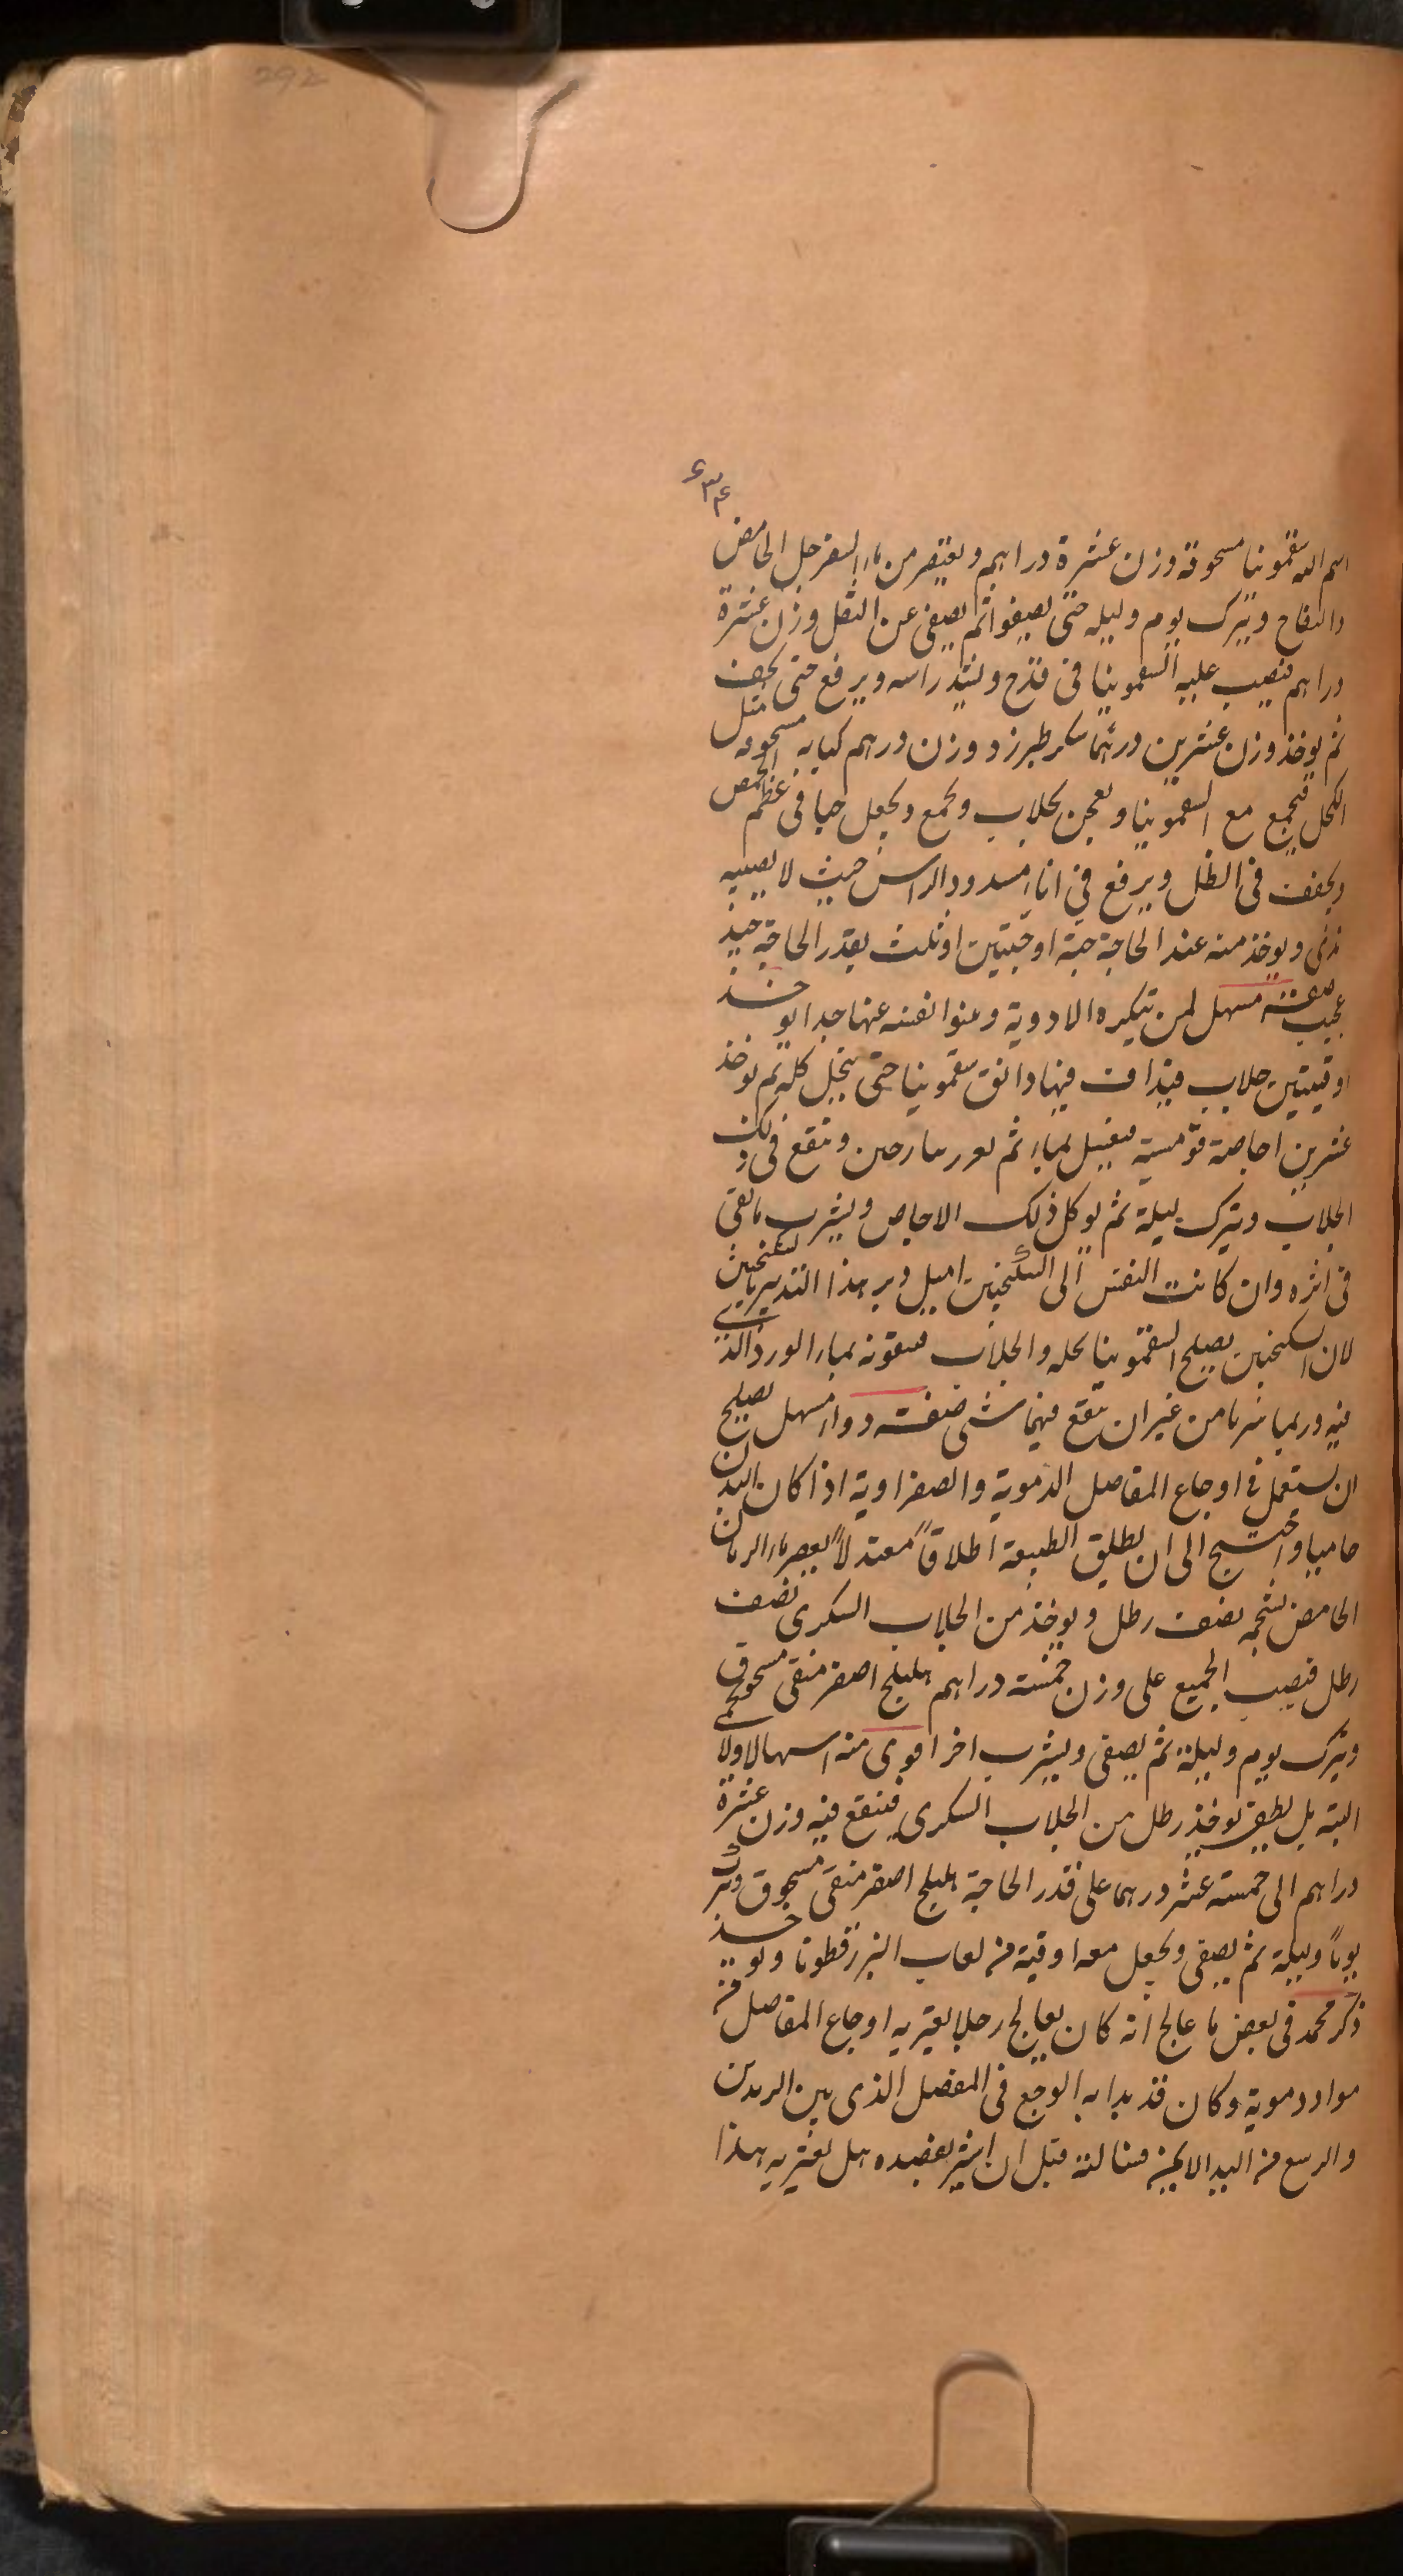 292
۶۳۴
اسم الله سقمونيا مسحوقة وزن عشرة دراهم ويعتصر من ماء السفرجل الحامض
والتفاح ويترك يوم وليله حتى يصفوا ثم يصفى عن الثفل وزن عشرة
دراهم فيصب عليه السقمونيا فى قدح ويشد راسه ويرفع حتى يجف
ثم يوخذ وزن عشرين درهما سكر طبرزد ووزن درهم كبابه مسحوقه مثل
الكحل فيجمع مع السقمونيا ويعجن بجلاب ويجمع ويجعل حبا فى عظم الحمص
ويجفف فى الظل ويرفع فى اناء مسدود الراس حيث لا يصيبه
ندى ويوخذ منه عند الحاجة حبة او حبتين او ثلث بقدر الحاجة جيد
عجيب صفة مسهل لمن يكره الادوية وينبوا نفسه عنها جدا يوخذ
اوقيتين جلاب فيداف فيها دانق سقمونيا حتى ينحل كله ثم يوخذ
عشرين اجاصة قومسية فيغسل بماء ثم وينقع فى ذلك
الجلاب ويترك ليلة ثم يوكل ذلك الاجاص ويشرب ما بقى
فى اثره وان كانت النفس الى السكنجبين اميل دبر هذا التدبير بالسكنجبين
لان السكنجبين يصلح السقمونيا كله والجلاب يقويه بماء الورد الذى
فيه وربما شربا من غير ان ينقع فيهما شى صفت دواء مسهل يصلح
ان يستعمل فى اوجاع المفاصل الدموية والصفراوية اذا كان البدن
حاميا واحتيج الى ان يطلق الطبيعة اطلاقاً معتدلاً يعصر ماء الرمان
الحامض بشحمه نصف رطل ويوخذ من الجلاب السكرى نصف
رطل فيصب الجميع على وزن خمسة دراهم هليلج اصفر منقى مسحوق
ويترك يوم وليلة ثم يصفى ويشرب اخر اقوى منه اسهالا ولا
البته بل يطفى يوخذ رطل من الجلاب السكرى فينقع فيه وزن عشرة
دراهم الى خمسة عشر درهما على قدر الحاجة هليلج اصفر منقى مسحوق ويترك
يوماً وليلة ثم يصفى ويجعل معه اوقية من لعاب البزرقطونا ويوخذ
ذكر محمد فى بعض ما عالج انه كان يعالج رجلا يعتريه اوجاع المفاصل من
مواد دموية وكان قد بدا به الوجع فى المفصل الذى بين الزندين
والرسغ من اليد الايمن فسالته قبل ان اشير بفصده هل يعتريه هذا